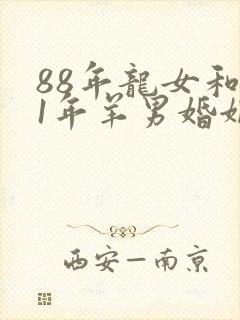 88年龍女和
1年羊男婚姻
西安—南京